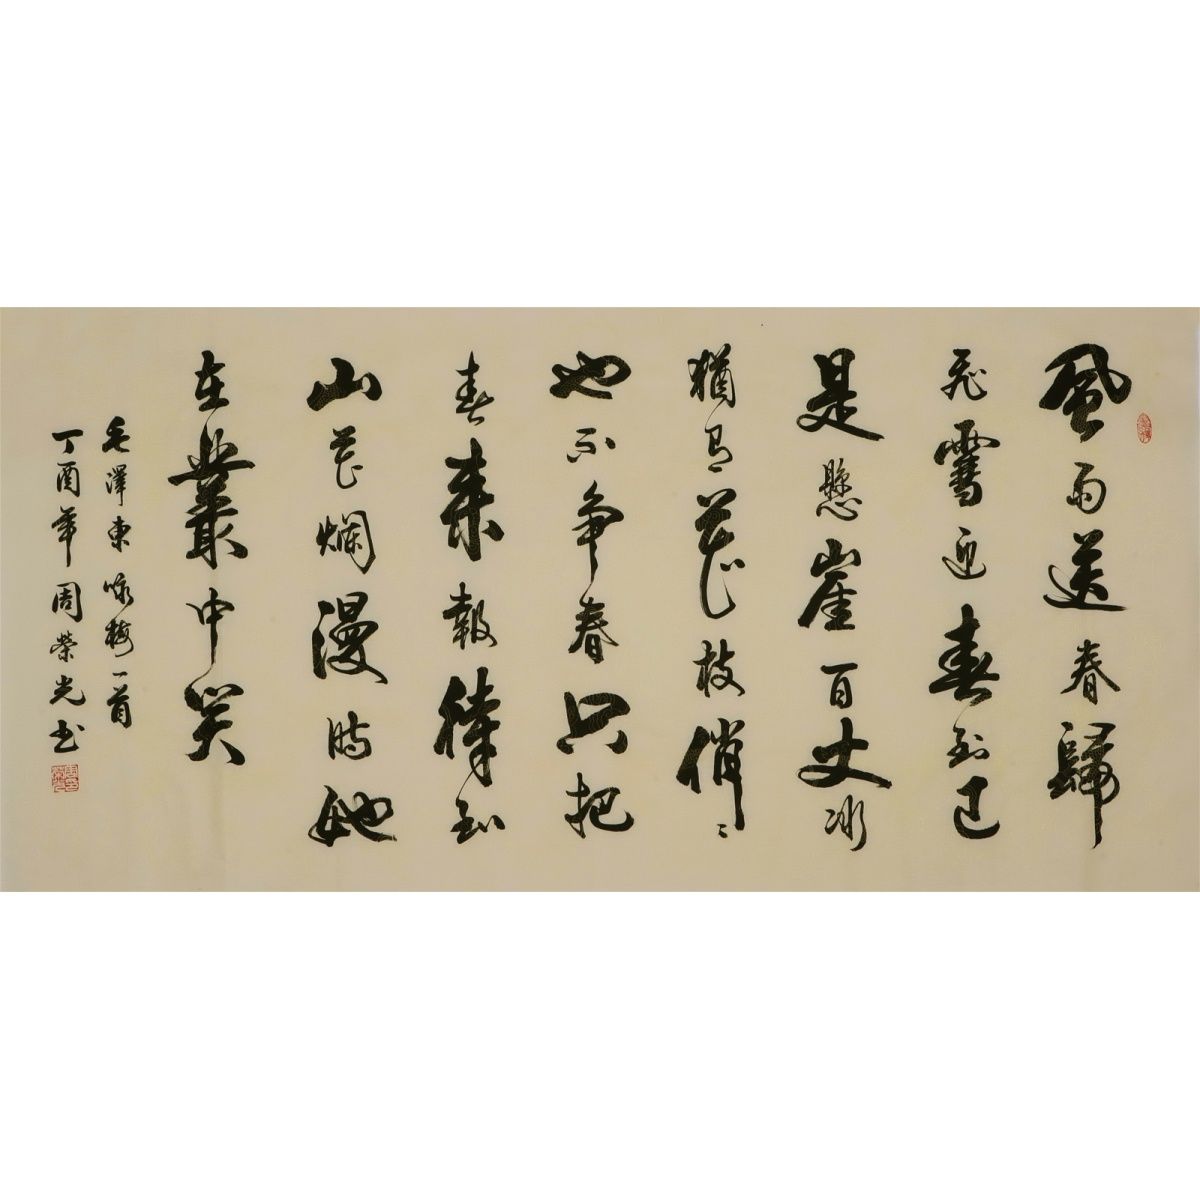 風雨送春歸
飛雪迎春到已
是懸崖百丈冰
猶有花枝俏〻
也不争春只把
春來報待到
山花爛漫時她
在叢中笑
毛澤東咏梅一首
丁酉年周榮光书